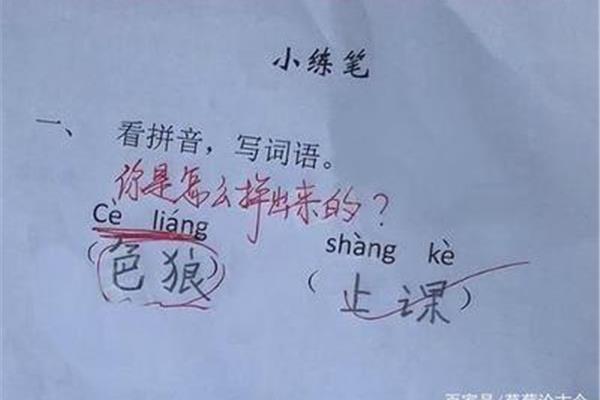 小练笔
一、 看拼音，写词语。
你是怎么拼出来的？
Cè liáng shàng kè
（色狼） （止课）